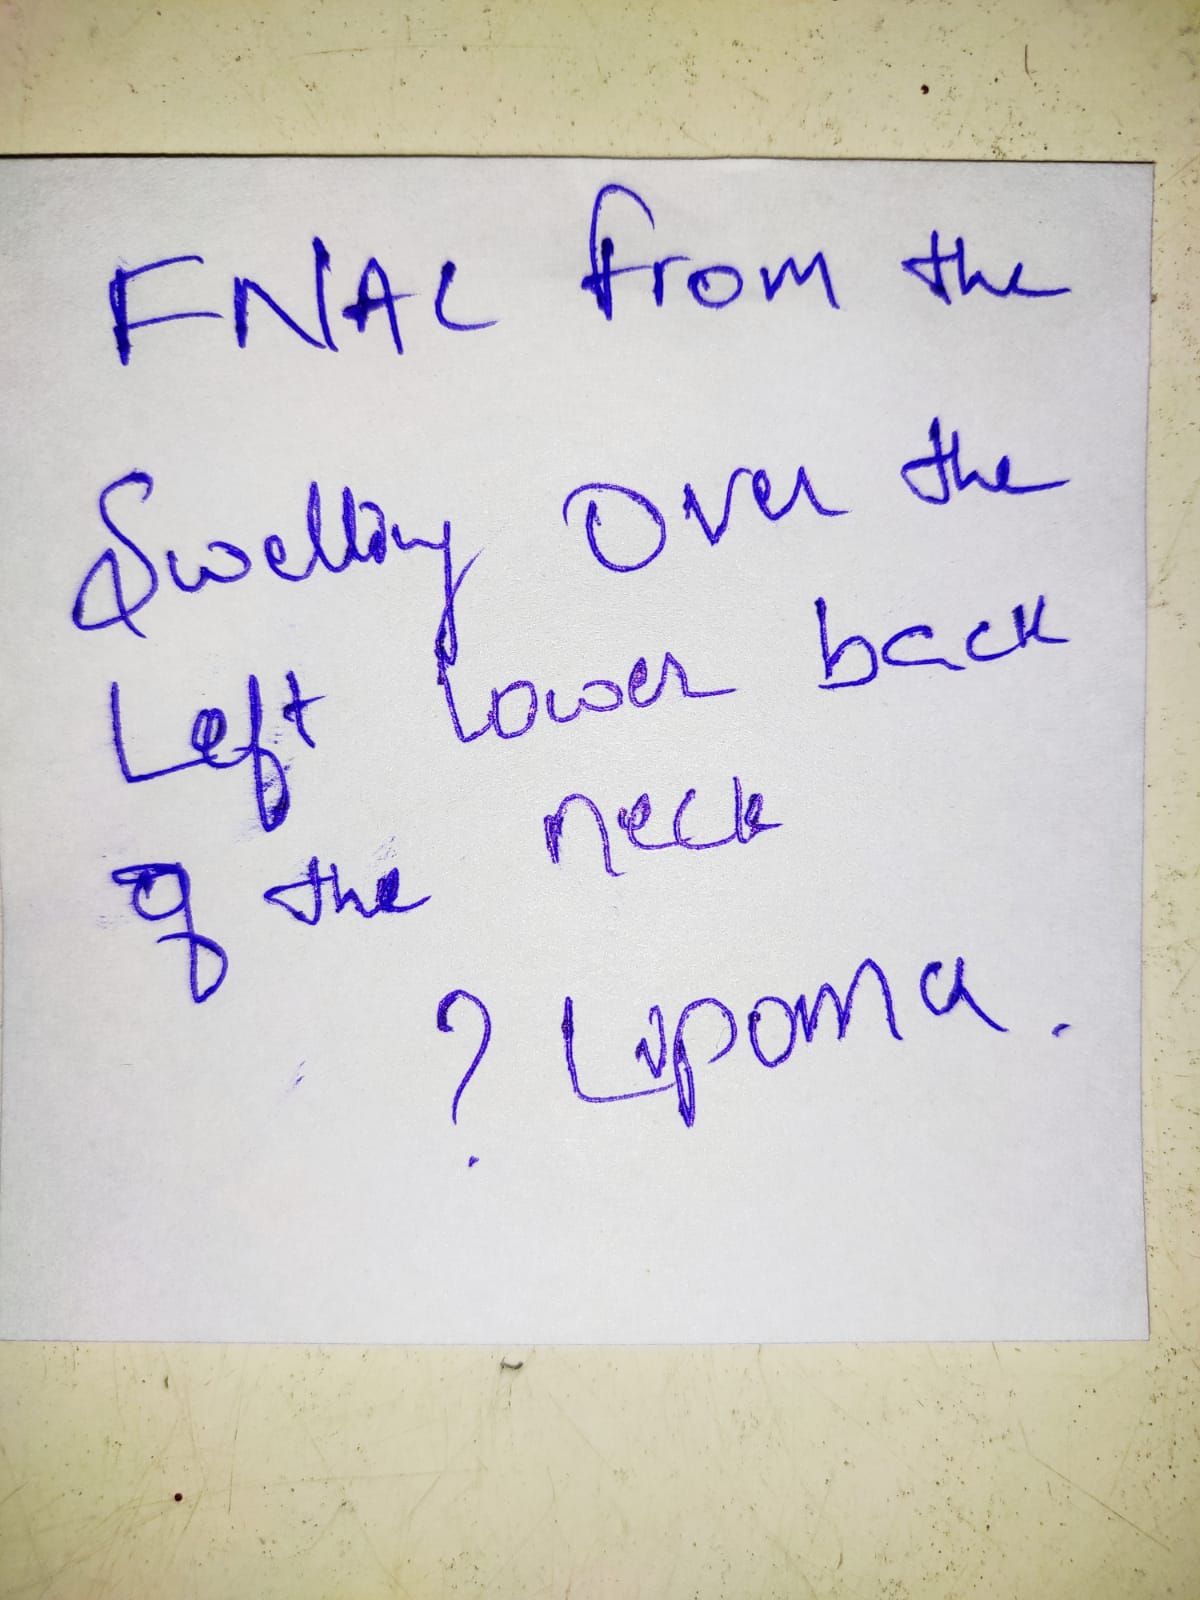 FNAC from the
Swelling Over the
Left lower back
of the neck
? Lipoma.